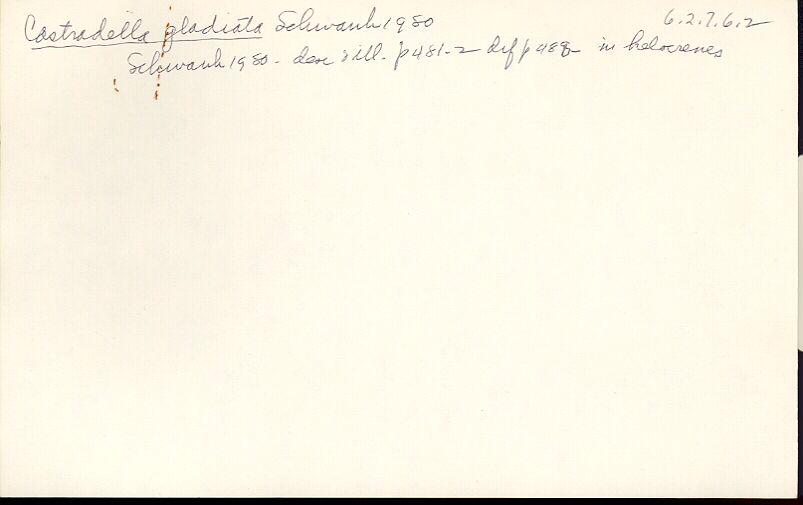 Castradella gladiata Schwank 1980 6.2.7.6.2
Schwank 1980 - desc & ill - p 481-2 dif p 488 in helocrenes